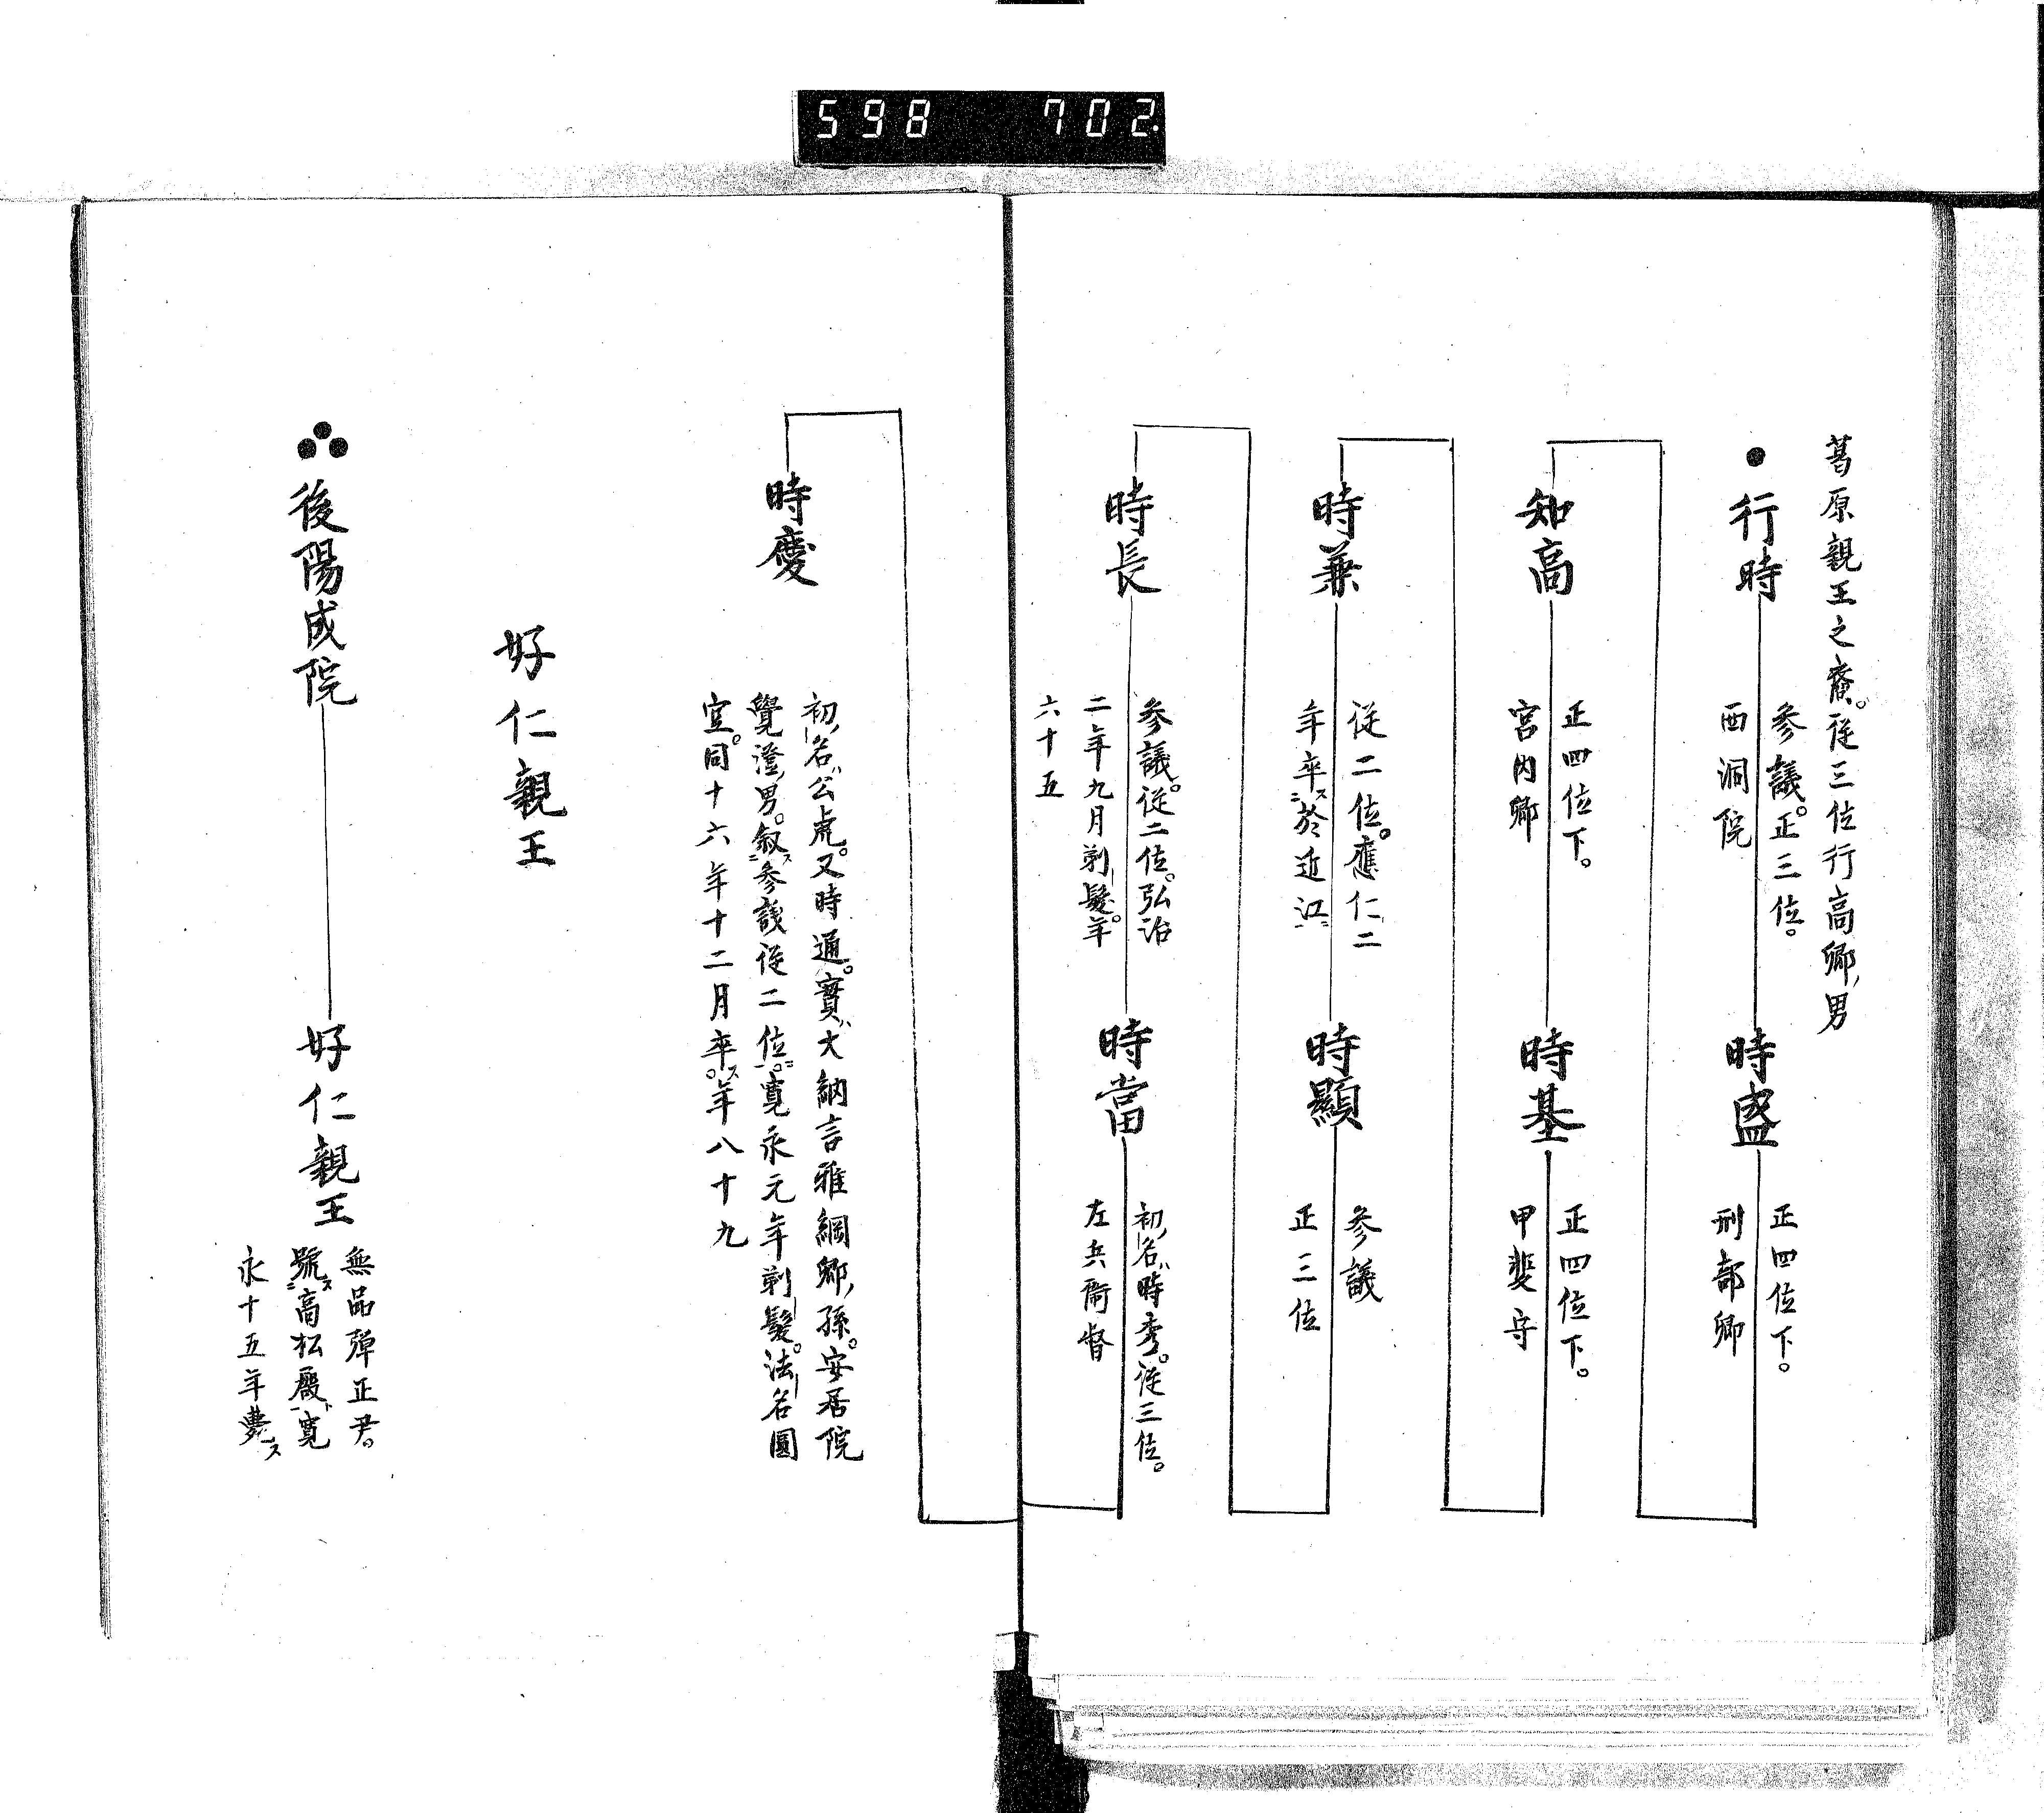 598 702.
葛原親王之裔。従三位行高卿ノ男
行時
参議。正三位。
西洞院
時盛
正四位下。
刑部卿
知高
正四位下。
宮内卿
時基
正四位下。
甲斐守
時兼
従二位。應仁二
年卒ス於近江ニ
時顯
参議
正三位
時長
参議。従二位。弘治
二年九月剃髮。年
六十五
時當
初ノ名ハ時秀。従三位。
左兵衞督
時慶
初ノ名ハ公虎。又時通。實ハ大納言雅綱卿ノ孫。安居院
覺澄ノ男。叙ス参議従二位ニ。寛永元年剃髮。法名圓
空。同十六年十二月卒ス。年八十九
好仁親王
後陽成院
好仁親王
無品弾正尹。
號ス高松殿ト寛
永十五年薨ス